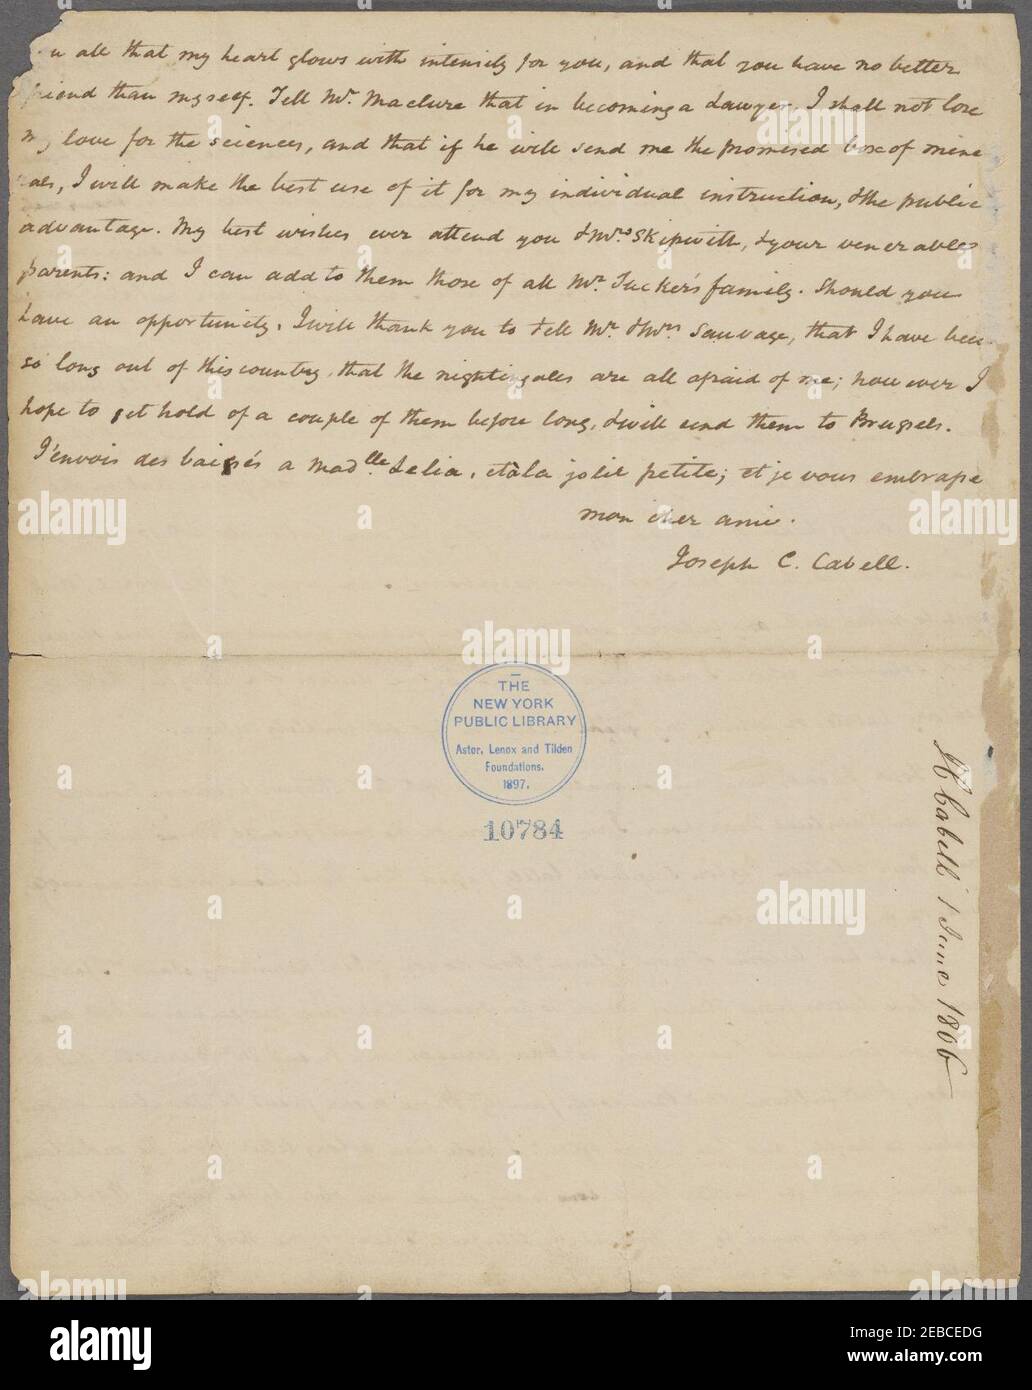 u all that my heart glows with intensity for you, and that you have no better
friend than myself. Tell Mr. Maclure that in becoming a Lawyer, I shall not lose
my love for the sciences, and that if he will send me the promised box of mine
rals, I will make the best use of it for my individual instruction, & the public
advantage. My best wishes ever attend you & Mrs. Skipwith, & your venerable
parents: and I can add to them those of all Mr. Tucker's family. Should you
have an opportunity, I will thank you to tell Mr. & Mrs. Sauvage, that I have been
so long out of this country, that the nightingales are all afraid of me; however I
hope to get hold of a couple of them before long, & will send them to Brussels.
J'envois des baisés a Madlle. Lelia, et à la jolie petite; et je vous embrasse
mon cher ami.
Joseph C. Cabell.
THE
NEW YORK
PUBLIC LIBRARY
Astor, Lenox and Tilden
Foundations.
1897.
10784
Cabell 1 June 1806
alamy
Image ID: 2EBCEDG
www.alamy.com